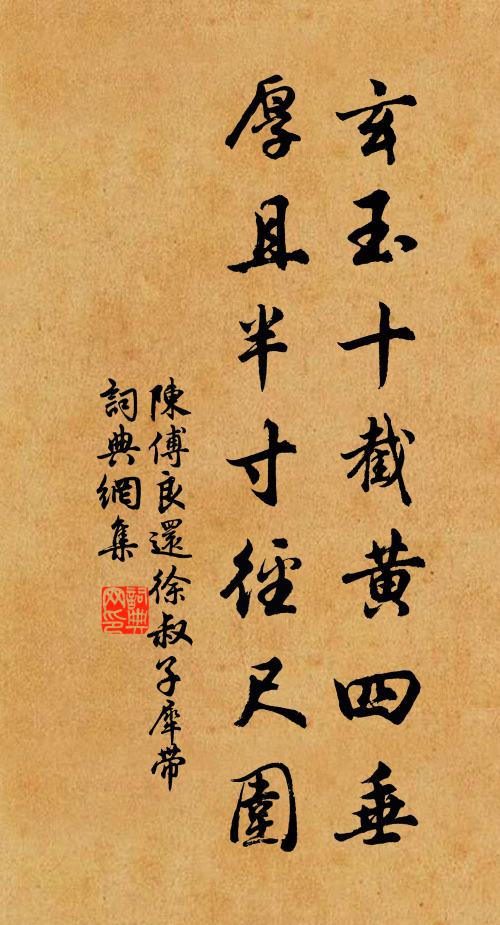 玄玉十截黃四垂
厚且半寸徑尺圍
陳傅良還徐叔子犀帶
詞典網集
詞典网印